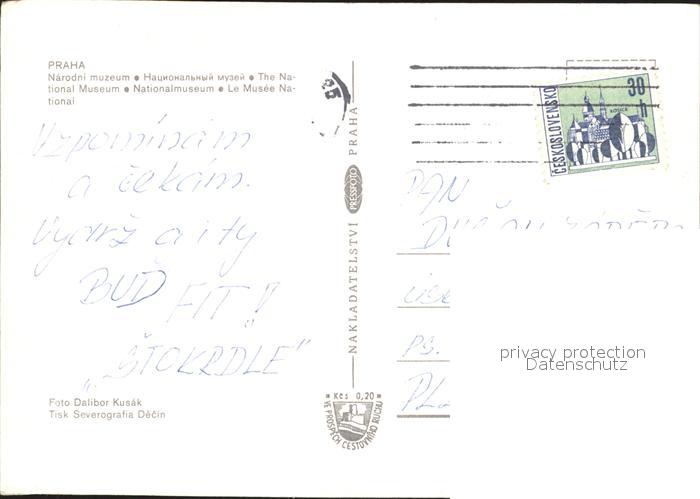 PRAHA
Národní muzeum ● Национальный музей ● The Na-
tional Museum ● Nationalmuseum ● Le Musée Na-
tional
Vzpomínám
a čekám.
Vydrž a i ty
BUĎ FIT!
„ŠTOKRDLE"
Foto Dalibor Kusák
Tisk Severografia Děčín
NAKLADATELSTVÍ PRESSFOTO PRAHA
Kčs 0,20
VE PROSPĚCH CESTOVNÍHO RUCHU
ČESKOSLOVENSKO
30 h
KOŠICE
PAN
privacy protection
Datenschutz